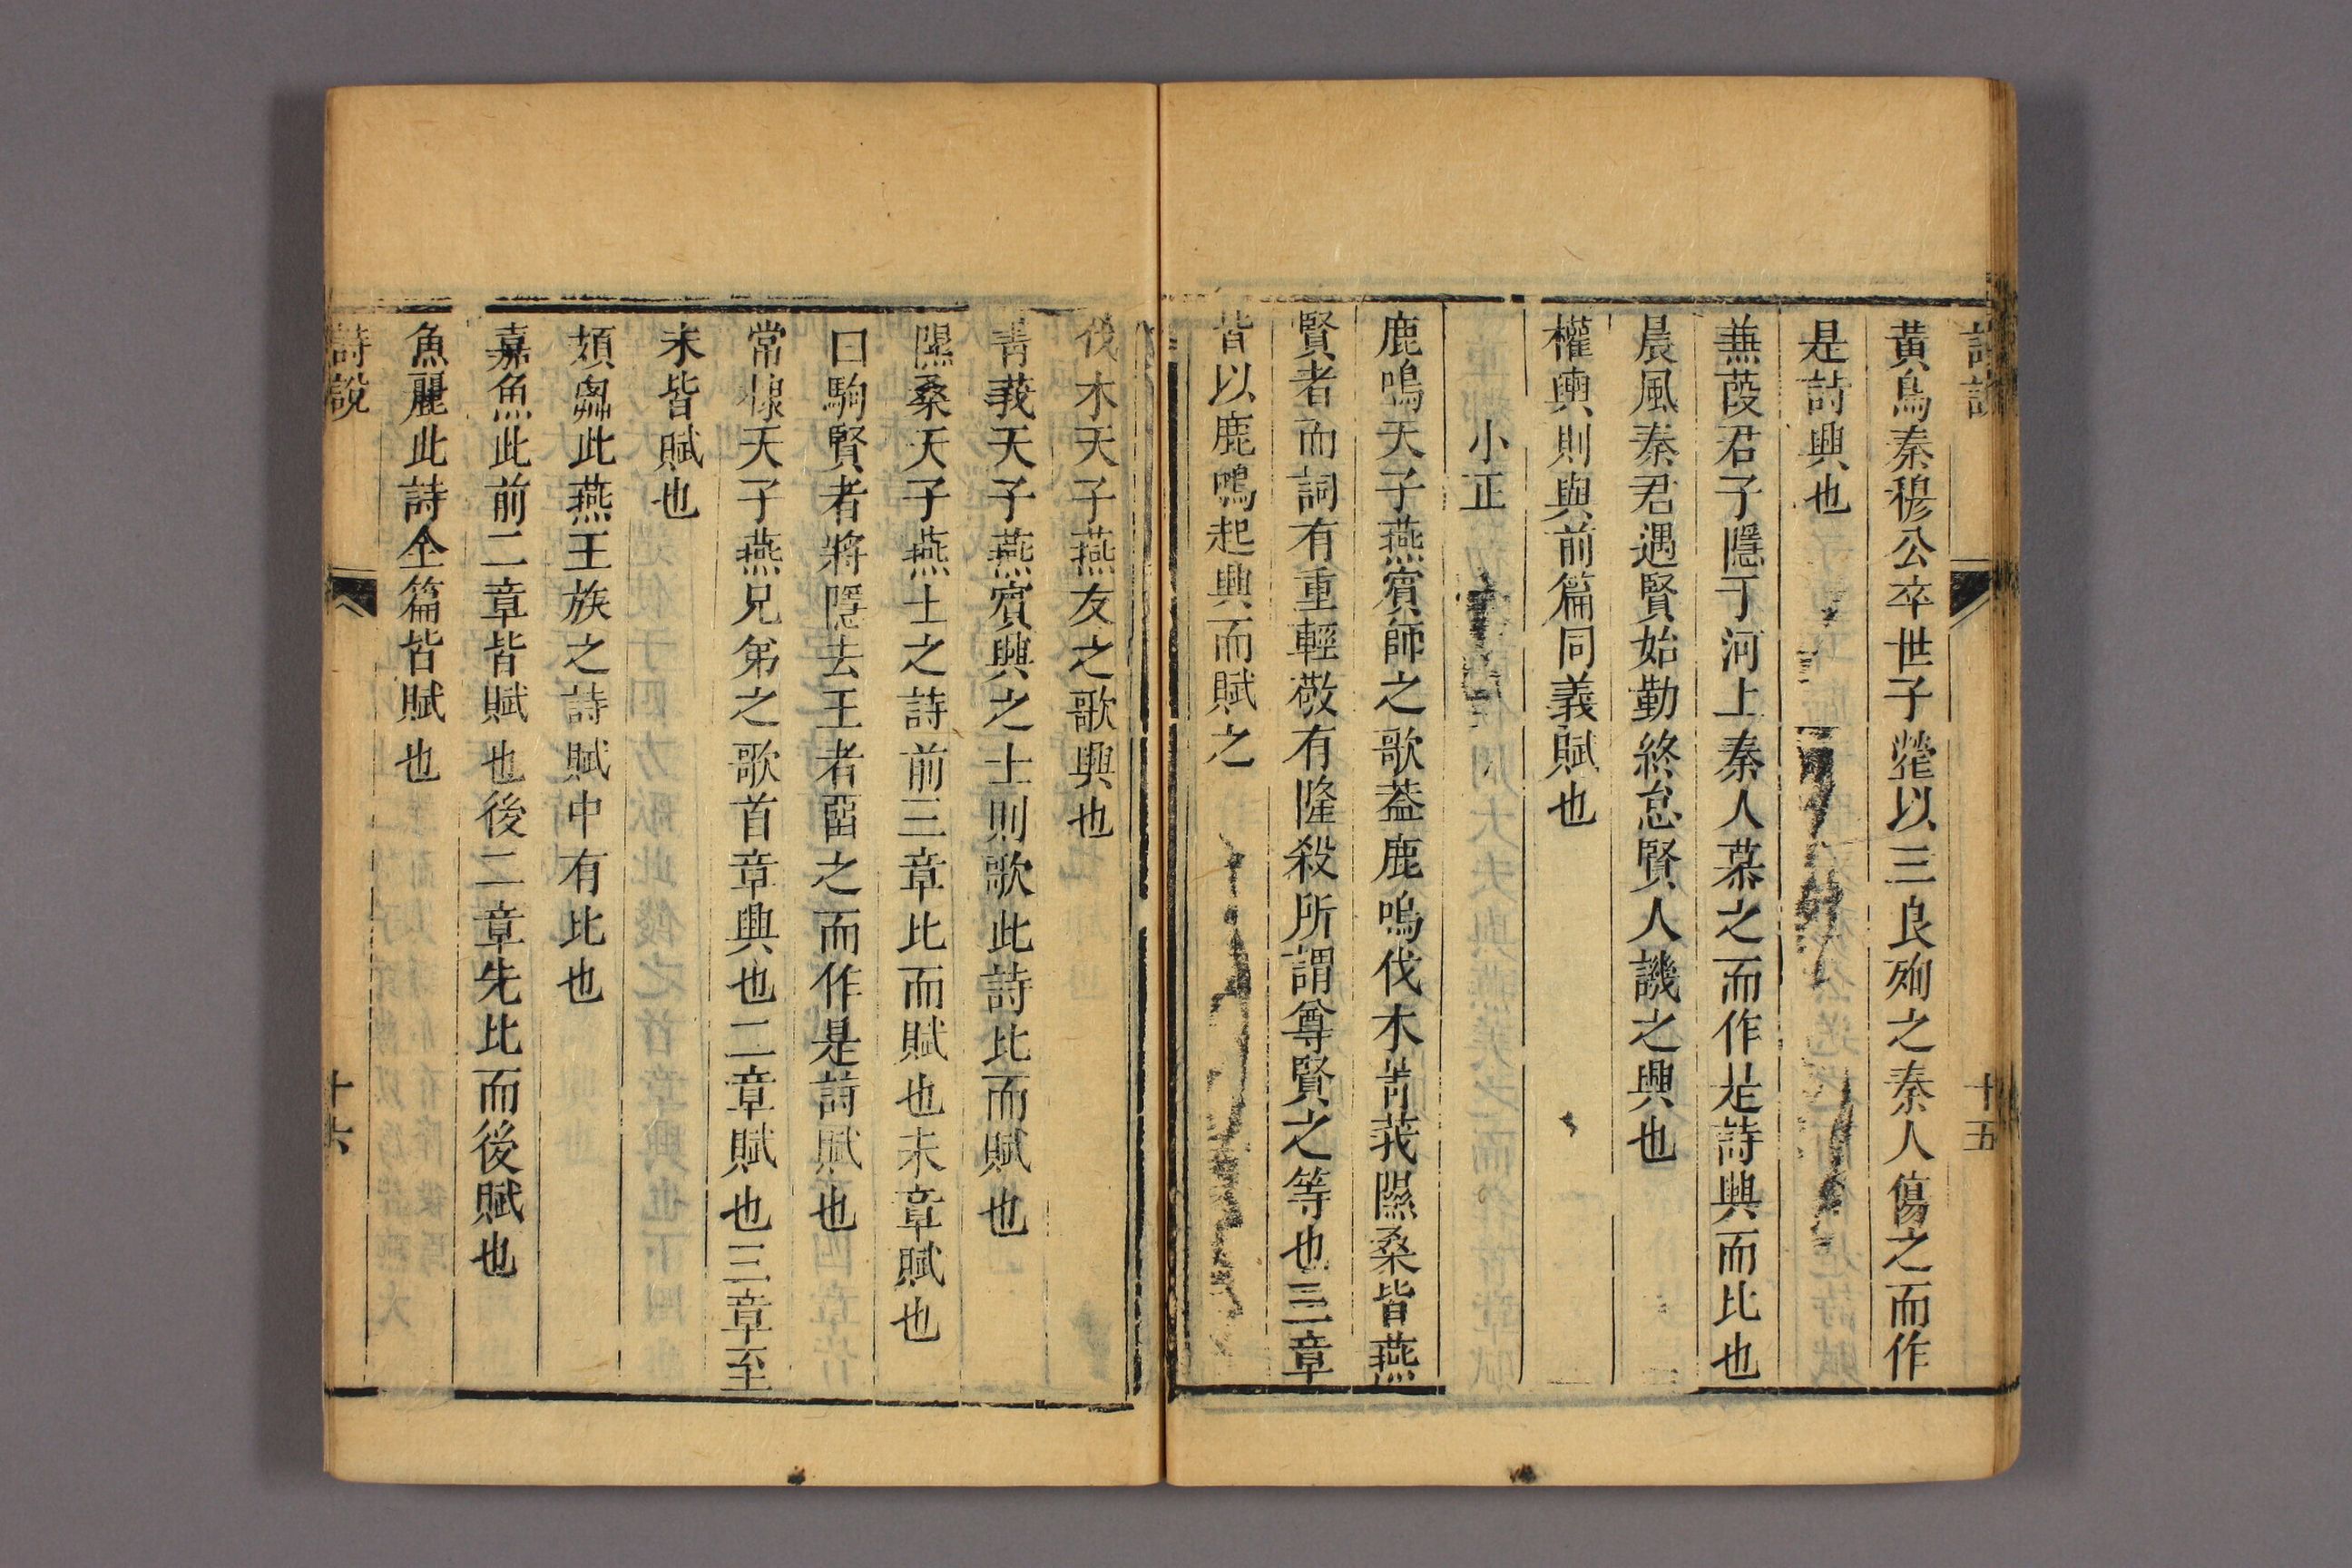 詩說
十五
黃鳥秦穆公卒世子罃以三良殉之秦人傷之而作
是詩興也
蒹葭君子隱于河上秦人慕之而作是詩興而比也
晨風秦君遇賢始勤終怠賢人譏之興也
權輿則與前篇同義賦也
小正
鹿鳴天子燕賓師之歌葢鹿鳴伐木菁莪隰桑皆燕
賢者而詞有重輕敬有隆殺所謂尊賢之等也三章
皆以鹿鳴起興而賦之
伐木天子燕友之歌興也
菁莪天子燕賓興之士則歌此詩比而賦也
隰桑天子燕士之詩前三章比而賦也末章賦也
白駒賢者將隱去王者畱之而作是詩賦也
常棣天子燕兄弟之歌首章興也二章賦也三章至
末皆賦也
頍弁此燕王族之詩賦中有比也
嘉魚此前二章皆賦也後二章先比而後賦也
魚麗此詩全篇皆賦也
詩說
十六